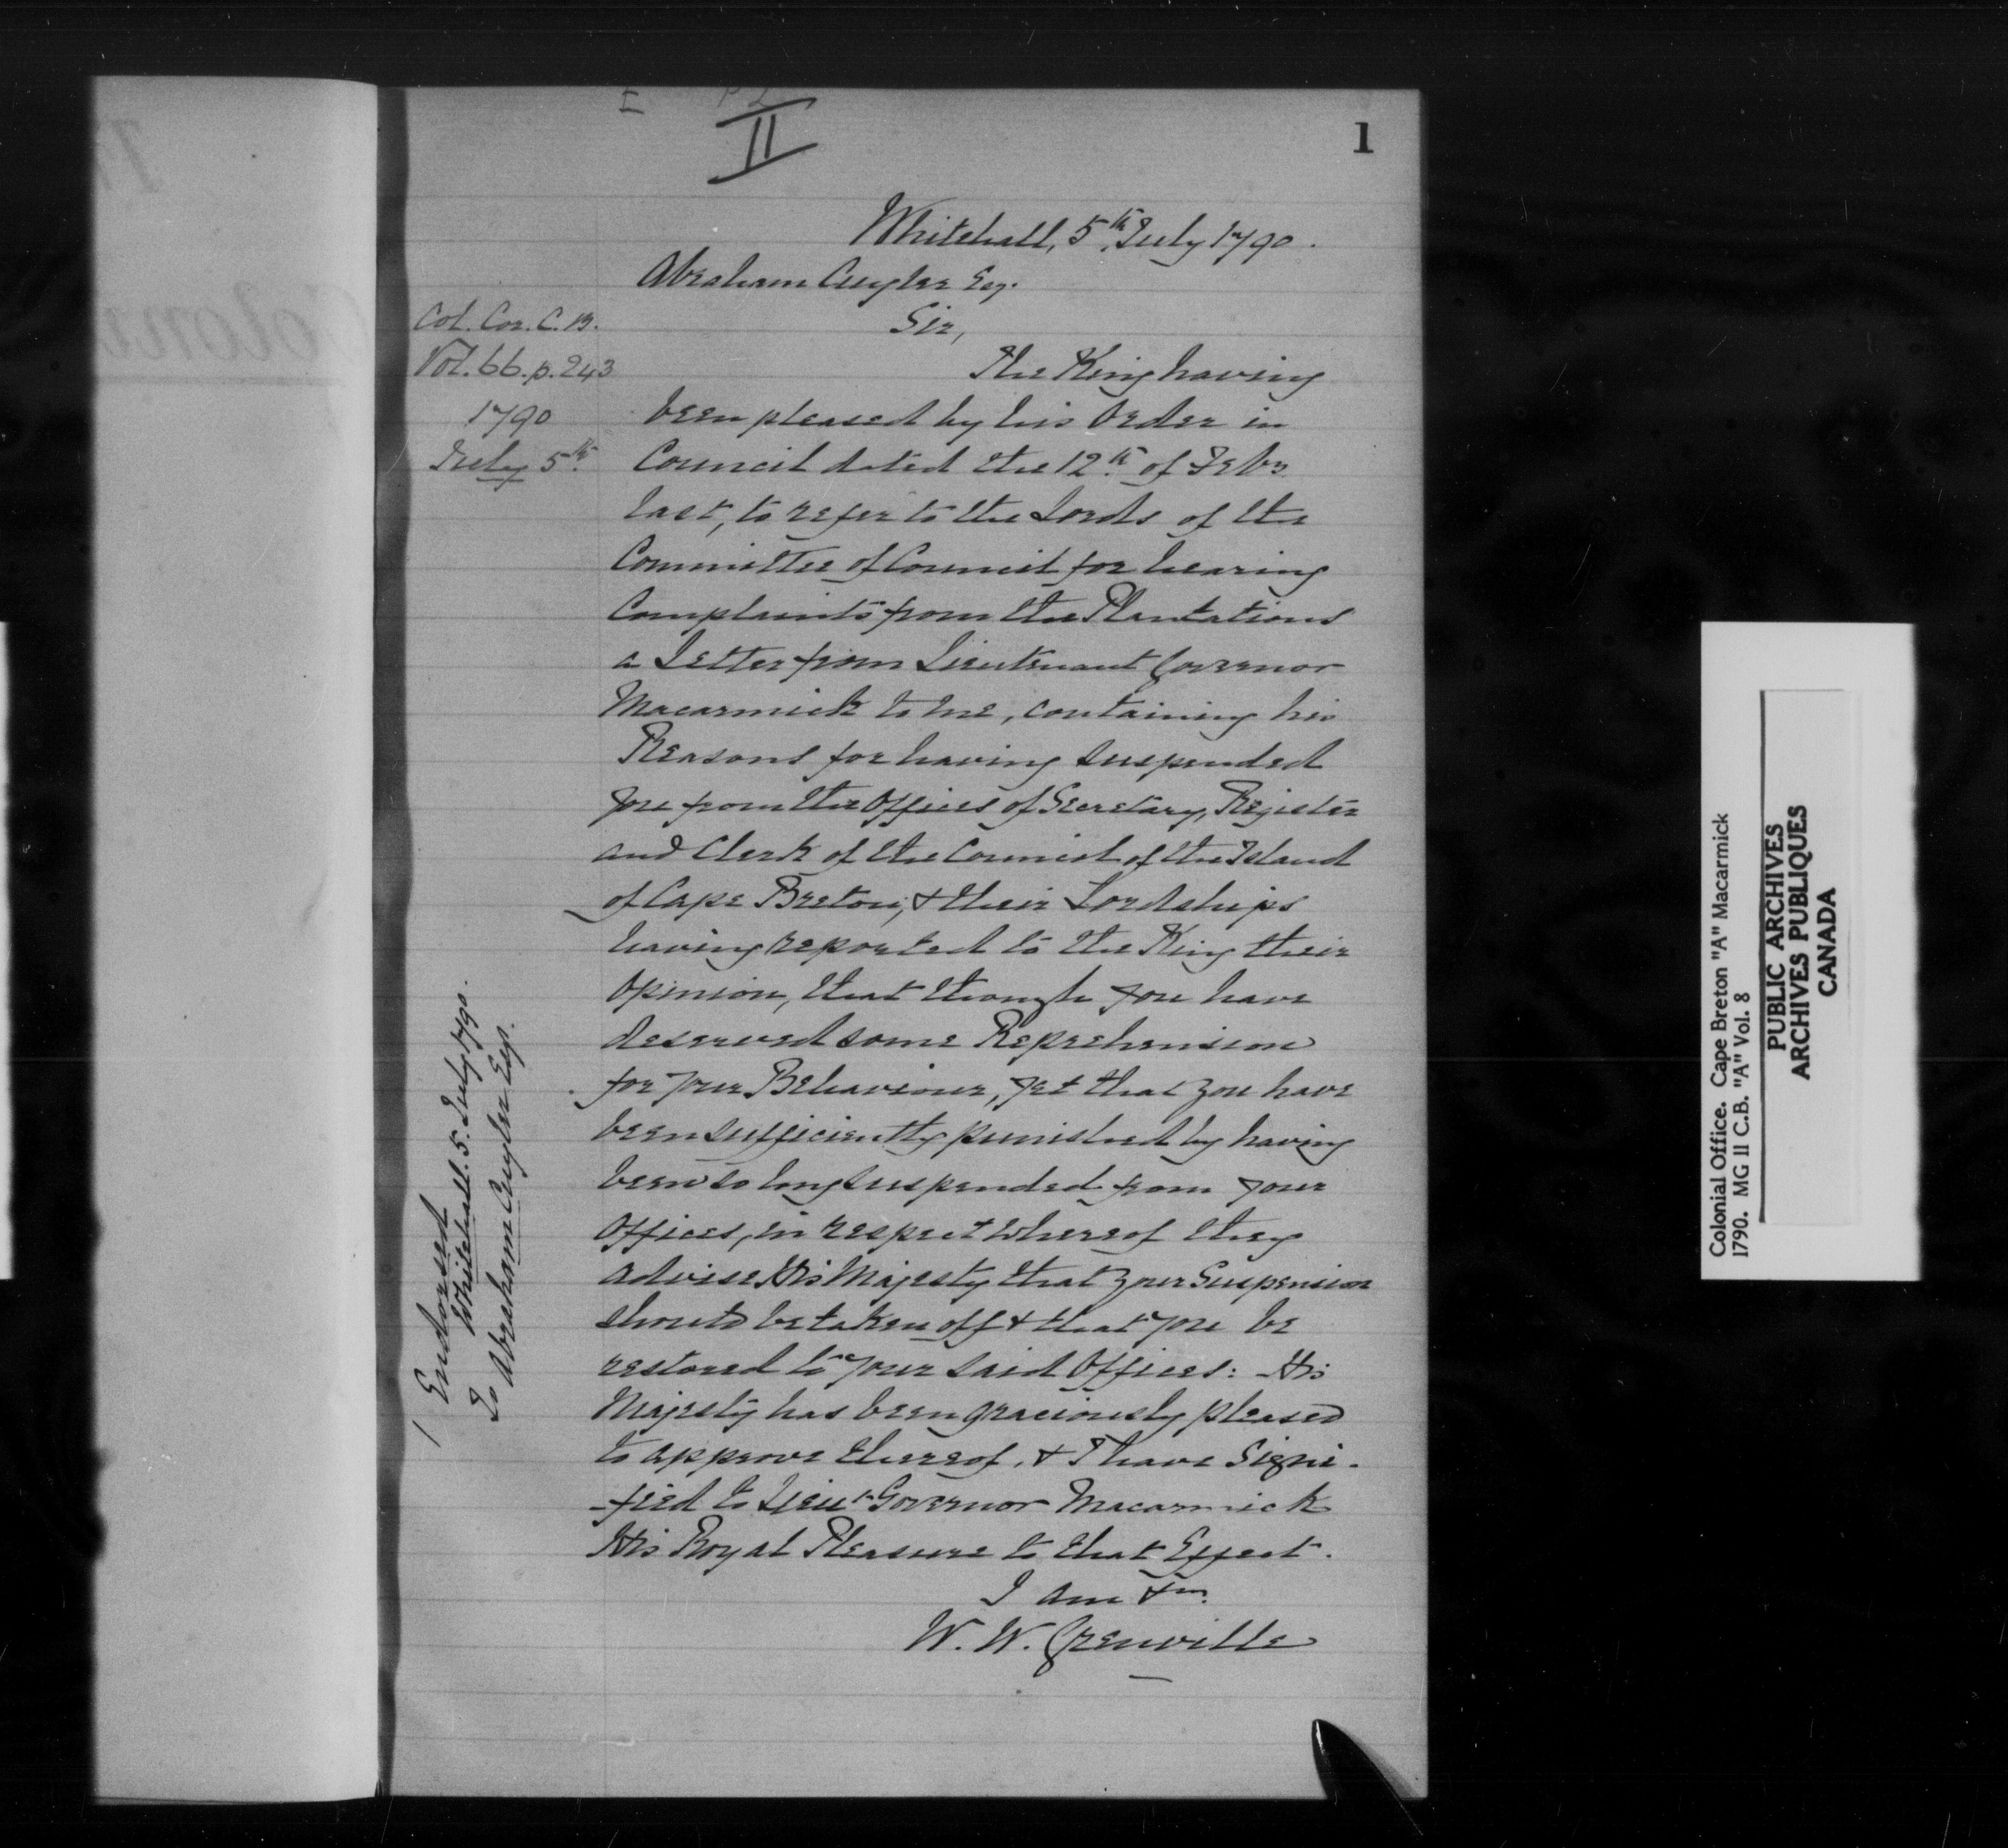 II
1
Whitehall, 5th July 1790.
Abraham Cuyler Esq.
Sir,
Col. Cor. C. B.
Vol. 66. p. 243
1790
July 5th
The King having
been pleased by his Order in
Council dated the 12th of Feby
last, to refer to the Lords of the
Committee of Council for hearing
Complaints from the Plantations
a Letter from Lieutenant Governor
Macarmick to me, containing his
Reasons for having suspended
you from the Offices of Secretary, Register
and Clerk of the Council of the Island
of Cape Breton, & their Lordships
having reported to the King their
Opinion, that though you have
deserved some Reprehension
for your Behaviour, yet that you have
been sufficiently punished by having
been so long suspended from your
Offices, in respect whereof they
advise His Majesty that your Suspension
should be taken off & that you be
restored to your said Offices: His
Majesty has been graciously pleased
to approve thereof, & I have Signi-
-fied to Lieut Governor Macarmick
His Royal Pleasure to that Effect.
I am &c.
W. W. Grenville
Endorsed
Whitehall. 5. July 1790.
To Abraham Cuyler Esq.
Colonial Office. Cape Breton "A" Macarmick
1790. MG 11 C.B. "A" Vol. 8
PUBLIC ARCHIVES
ARCHIVES PUBLIQUES
CANADA